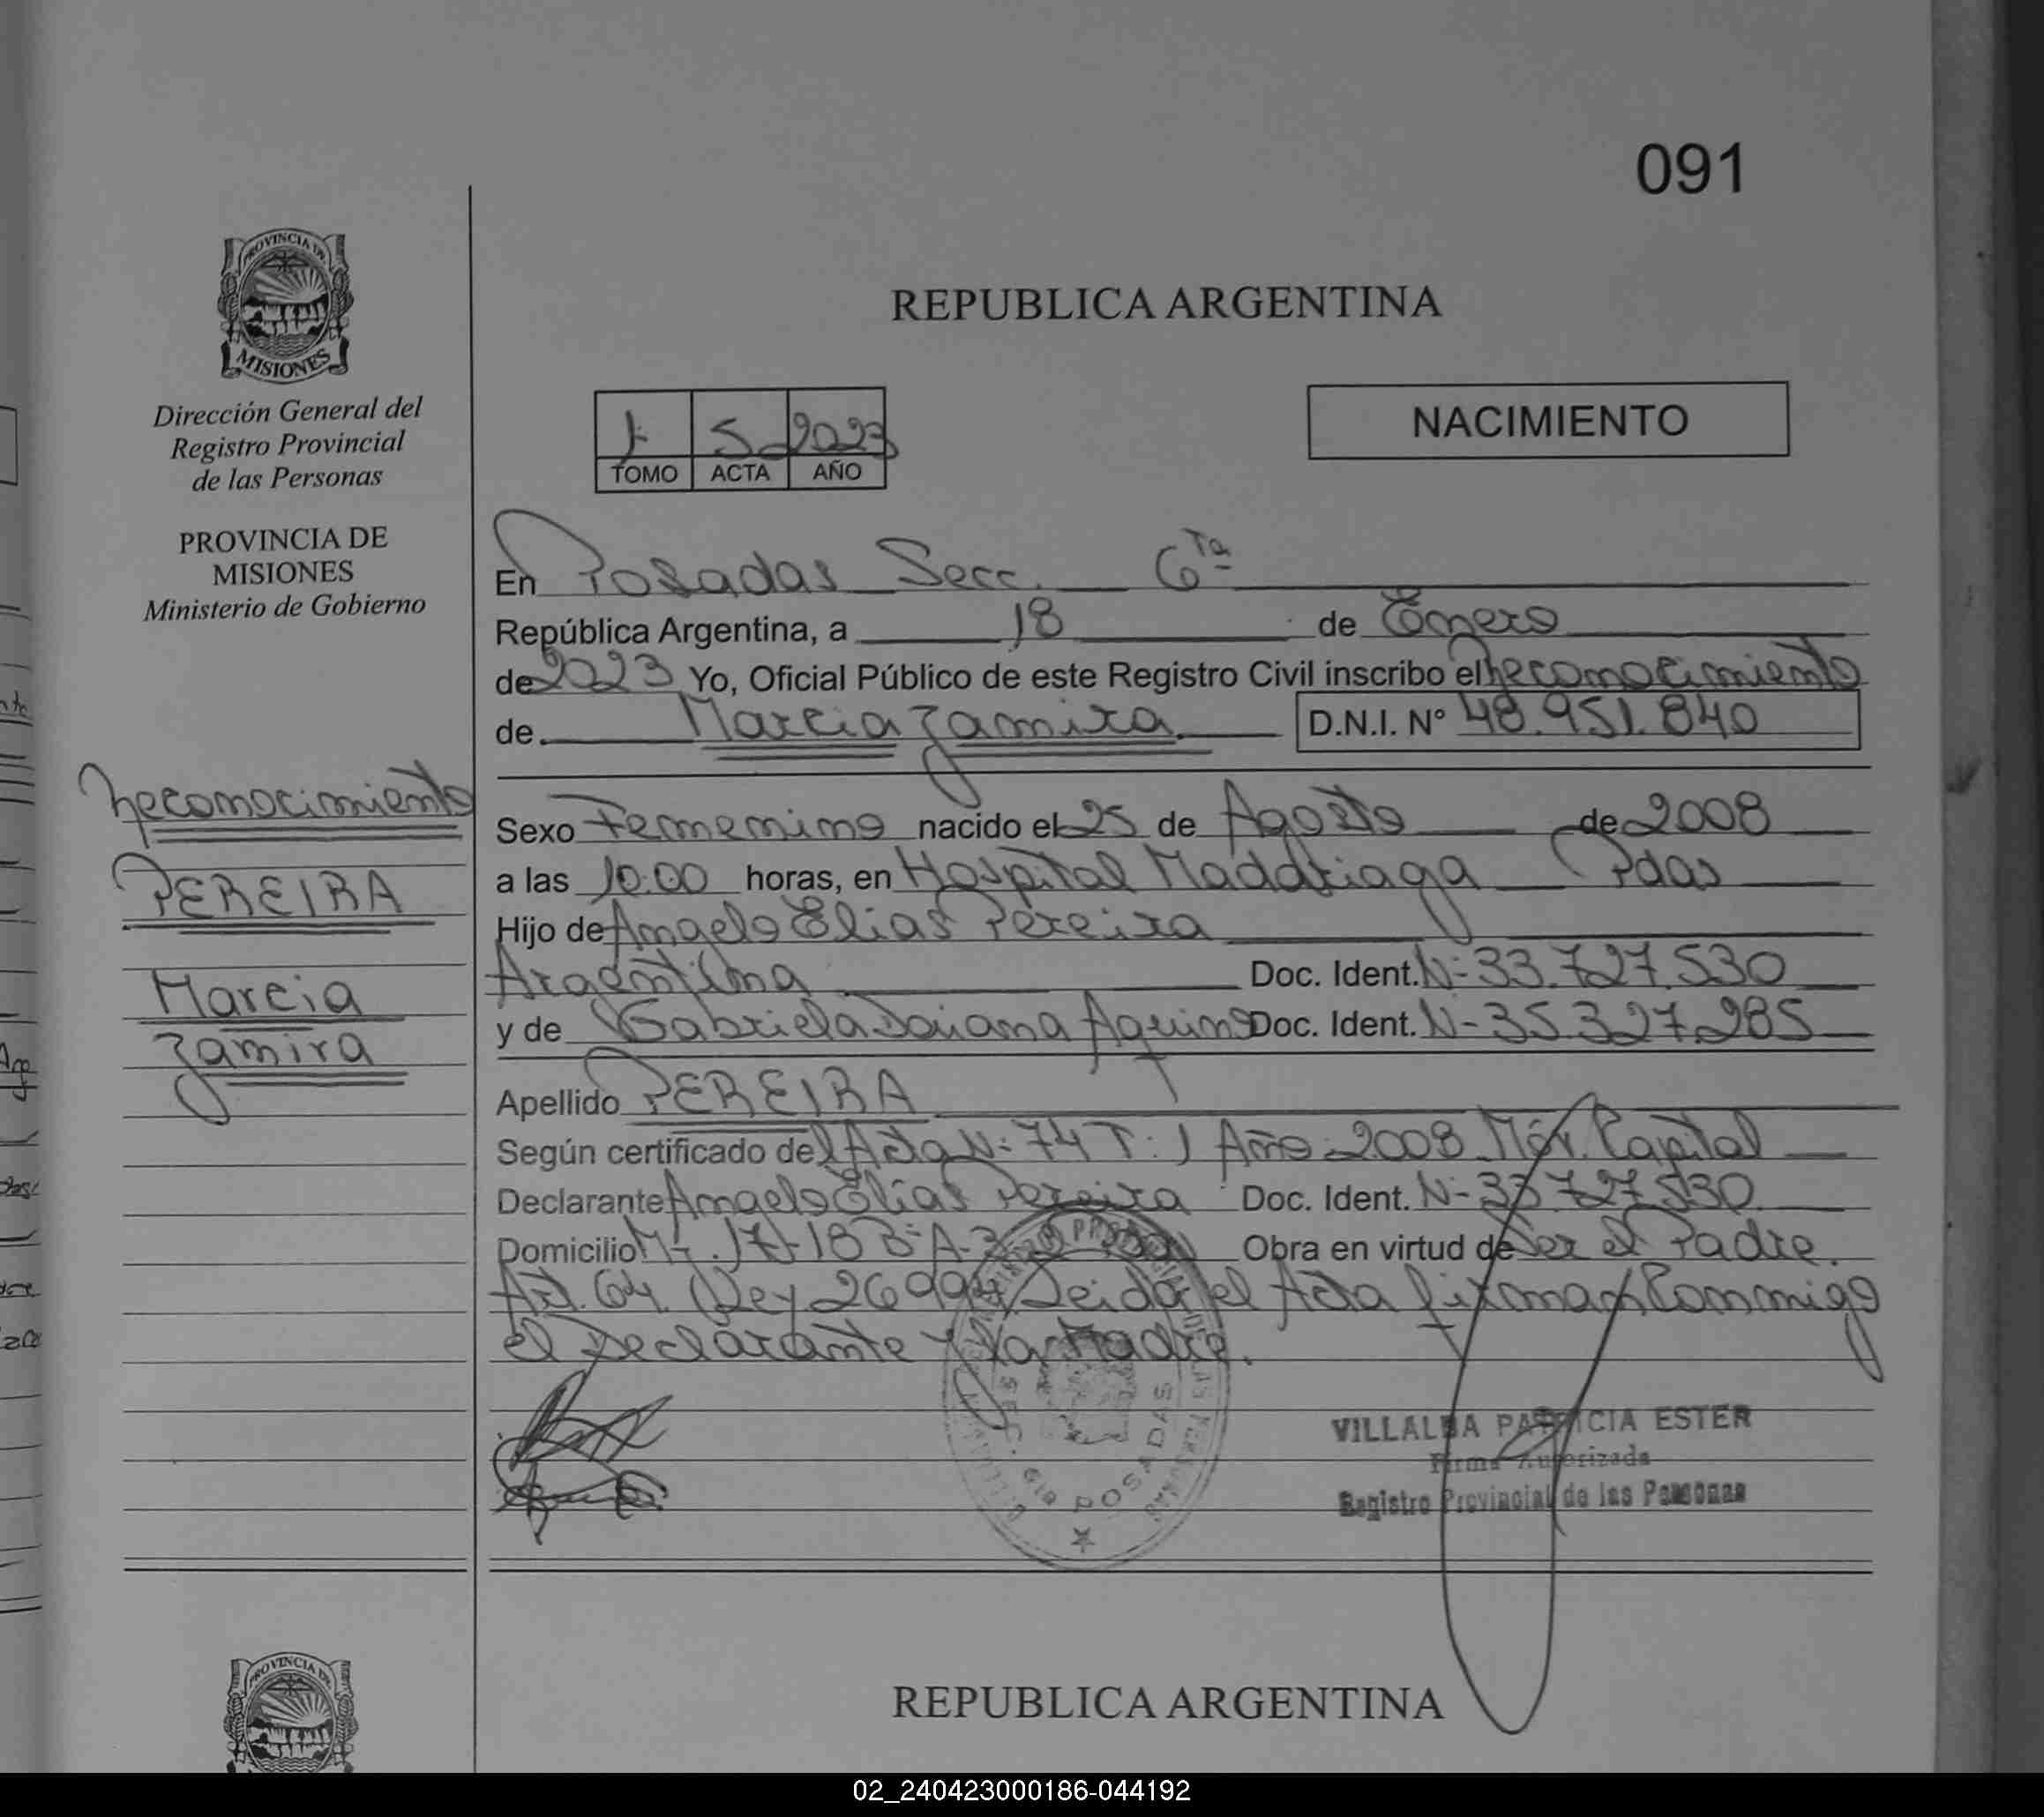 091
PROVINCIA DE
MISIONES
Dirección General del
Registro Provincial
de las Personas
PROVINCIA DE
MISIONES
Ministerio de Gobierno
Reconocimiento
PEREIRA
Marcia
Zamira
REPUBLICA ARGENTINA
1 5 2023
TOMO ACTA AÑO
NACIMIENTO
En Posadas Secc. 6ta
República Argentina, a 18 de Enero
de 2023 Yo, Oficial Público de este Registro Civil inscribo el Reconocimiento
de Marcia Zamira D.N.I. N° 48.951.840
Sexo Femenino nacido el 25 de Agosto de 2008
a las 10:00 horas, en Hospital Maddriaga Pdas
Hijo de Angelo Elias Pereira
Argentina Doc. Ident. N- 33.727.530
y de Gabriela Daiana Aquino Doc. Ident. N- 35.327.285
Apellido PEREIRA
Según certificado del Acta N: 74 T: 1 Año: 2008 Capital
Declarante Angelo Elias Pereira Doc. Ident. N- 33.727.530
Domicilio Obra en virtud de Ser el Padre.
Art. 64 Ley 26994 Leida el Acta firman Conmigo
el Declarante y la Madre.
POSADAS
VILLALBA PATRICIA ESTER
Firma Autorizada
Registro Provincial de las Personas
PROVINCIA DE
REPUBLICA ARGENTINA
02_240423000186-044192